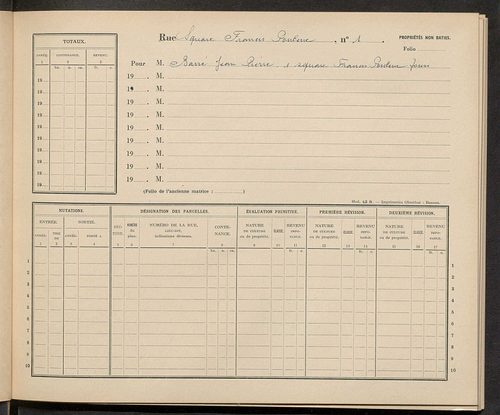 TOTAUX.
ANNÉE. CONTENANCE. REVENU.
1 2 3
ha. a. ca. fr. c.
19
19
19
19
19
19
Rue Square Francis Poulenc, nº 1. PROPRIÉTÉS NON BATIES.
Folio
Pour M. Barre Jean Pierre 1 square Francis Poulenc
19 M.
19 M.
19 M.
19 M.
19 M.
19 M.
(Folio de l'ancienne matrice : )
MUTATIONS. DÉSIGNATION DES PARCELLES. ÉVALUATION PRIMITIVE. PREMIÈRE RÉVISION. DEUXIÈME RÉVISION.
ENTRÉE. SORTIE.
ANNÉE. TIRÉ DE ANNÉE. PORTÉ A SECTION. NUMÉRO du plan. NUMÉRO DE LA RUE, LIEU-DIT, indications diverses. CONTENANCE. NATURE DE CULTURE ou de propriété. CLASSE. REVENU IMPOSABLE. NATURE DE CULTURE ou de propriété. CLASSE. REVENU IMPOSABLE. NATURE DE CULTURE ou de propriété. CLASSE. REVENU IMPOSABLE.
1 2 3 4 5 6 7 8 9 10 11 12 13 14 15 16 17
1 1
2 2
3 3
4 4
5 5
6 6
7 7
8 8
9 9
10 10